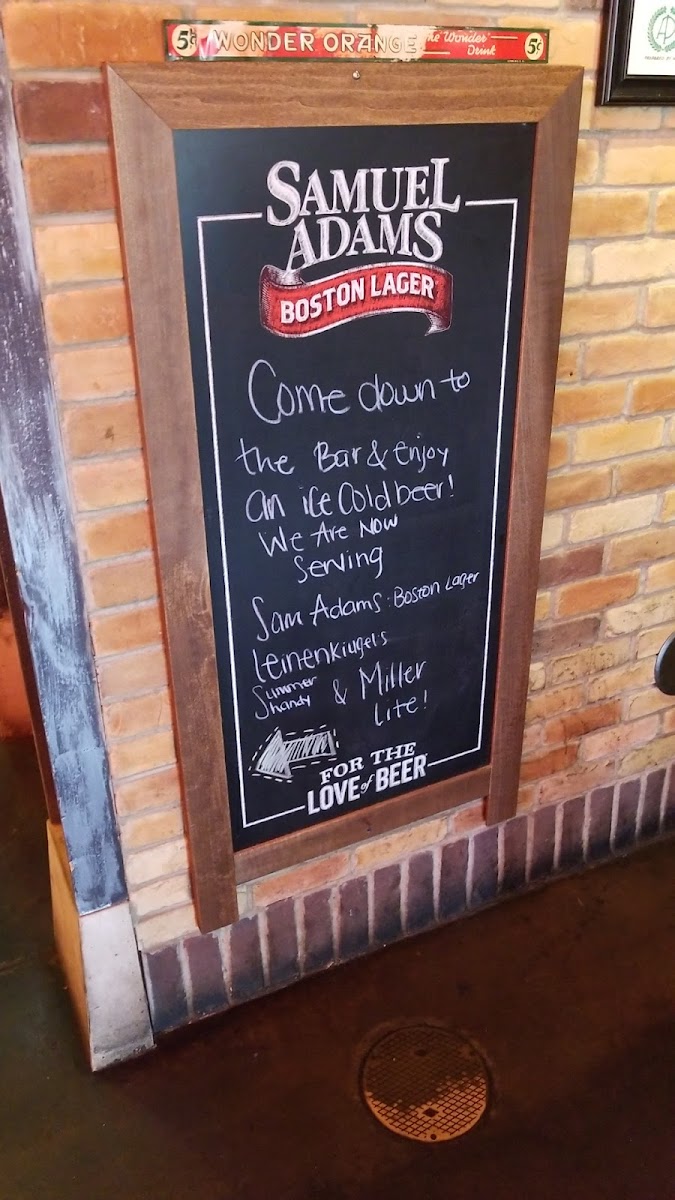 5¢ WONDER ORANGE The Wonder Drink 5¢
SAMUEL
ADAMS
BOSTON LAGER
Come down to
the Bar & enjoy
an ice Cold beer!
We Are Now
Serving
Sam Adams: Boston Lager
leinenkiugels
Summer
Shandy & Miller
Lite!
FOR THE
LOVE of BEER